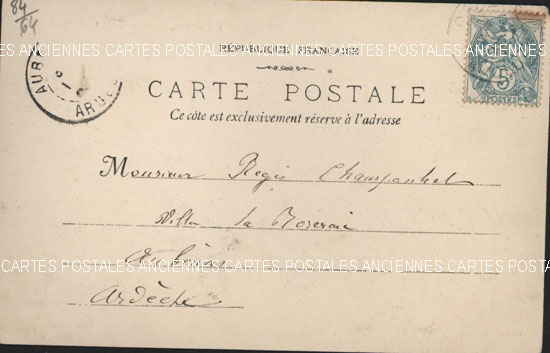 84/64
CARTES POSTALES ANCIENNES CARTES POSTALES ANCIENNES CARTES POSTALES
RÉPUBLIQUE FRANÇAISE
AUB
ARDÈC
5
POSTES
CARTE POSTALE
Ce côte est exclusivement réserve à l'adresse
Monsieur Régis Champanhet
Villa la Roseraie
CARTES POSTALES ANCIENNES CARTES POSTALES ANCIENNES CARTES POSTALES
Ardèche